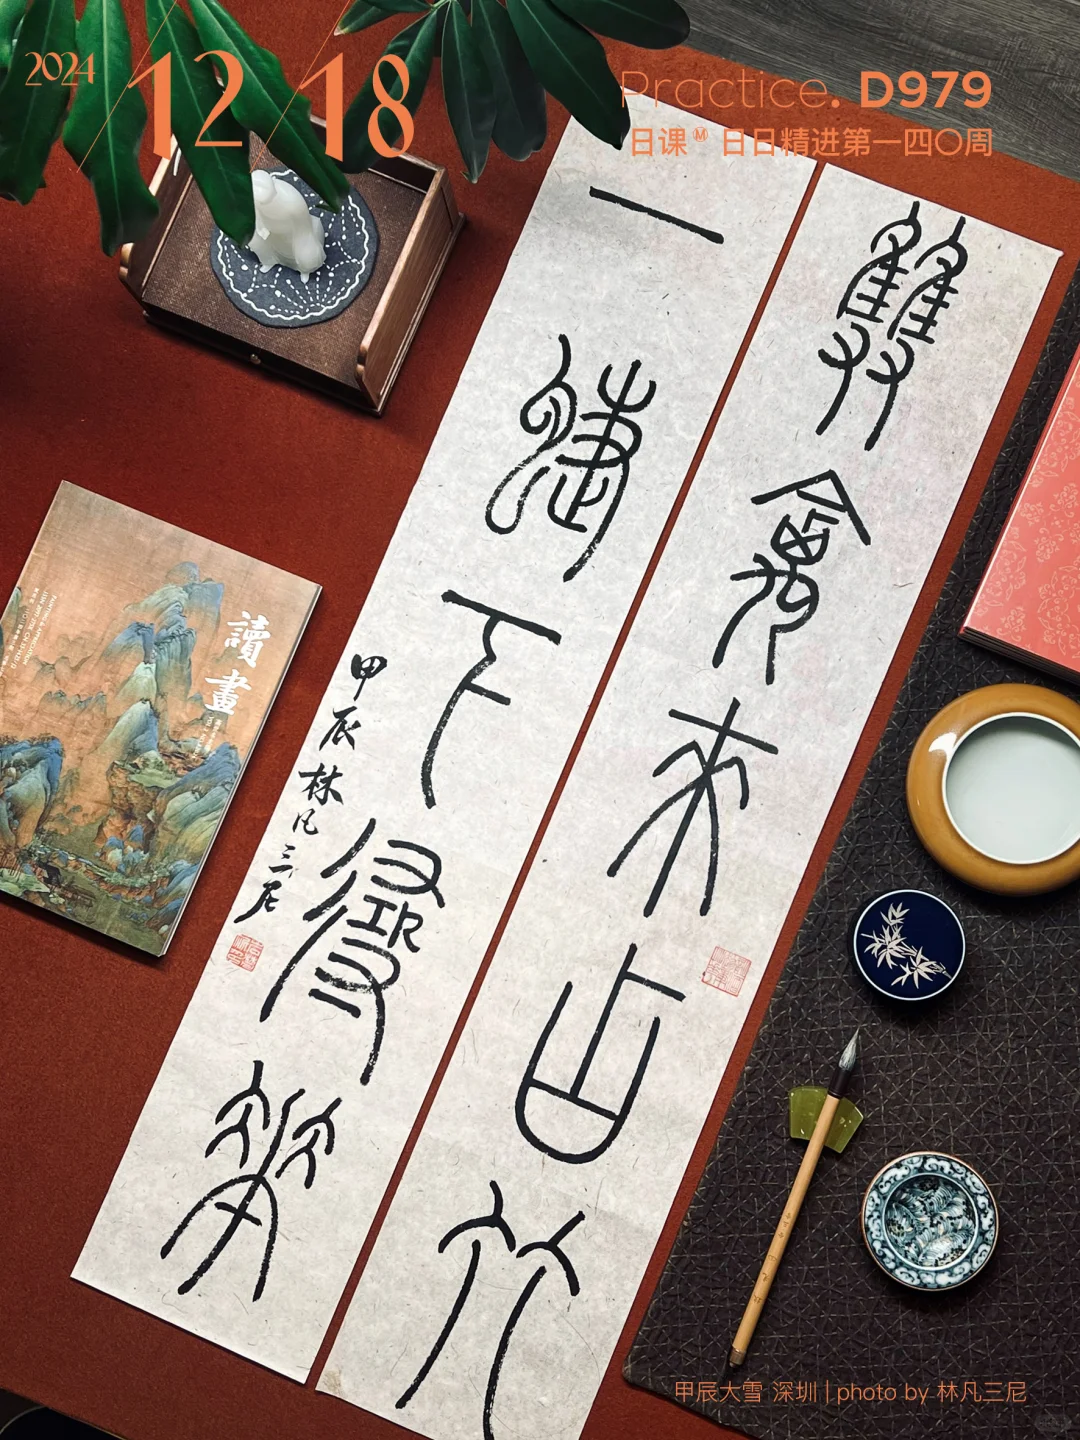 2024 12/18
Practice. D979
日课Ⓜ 日日精进第一四〇周
雙禽來占竹
一蜨下尋華
甲辰 林凡三尼
讀畫
甲辰大雪 深圳 | photo by 林凡三尼